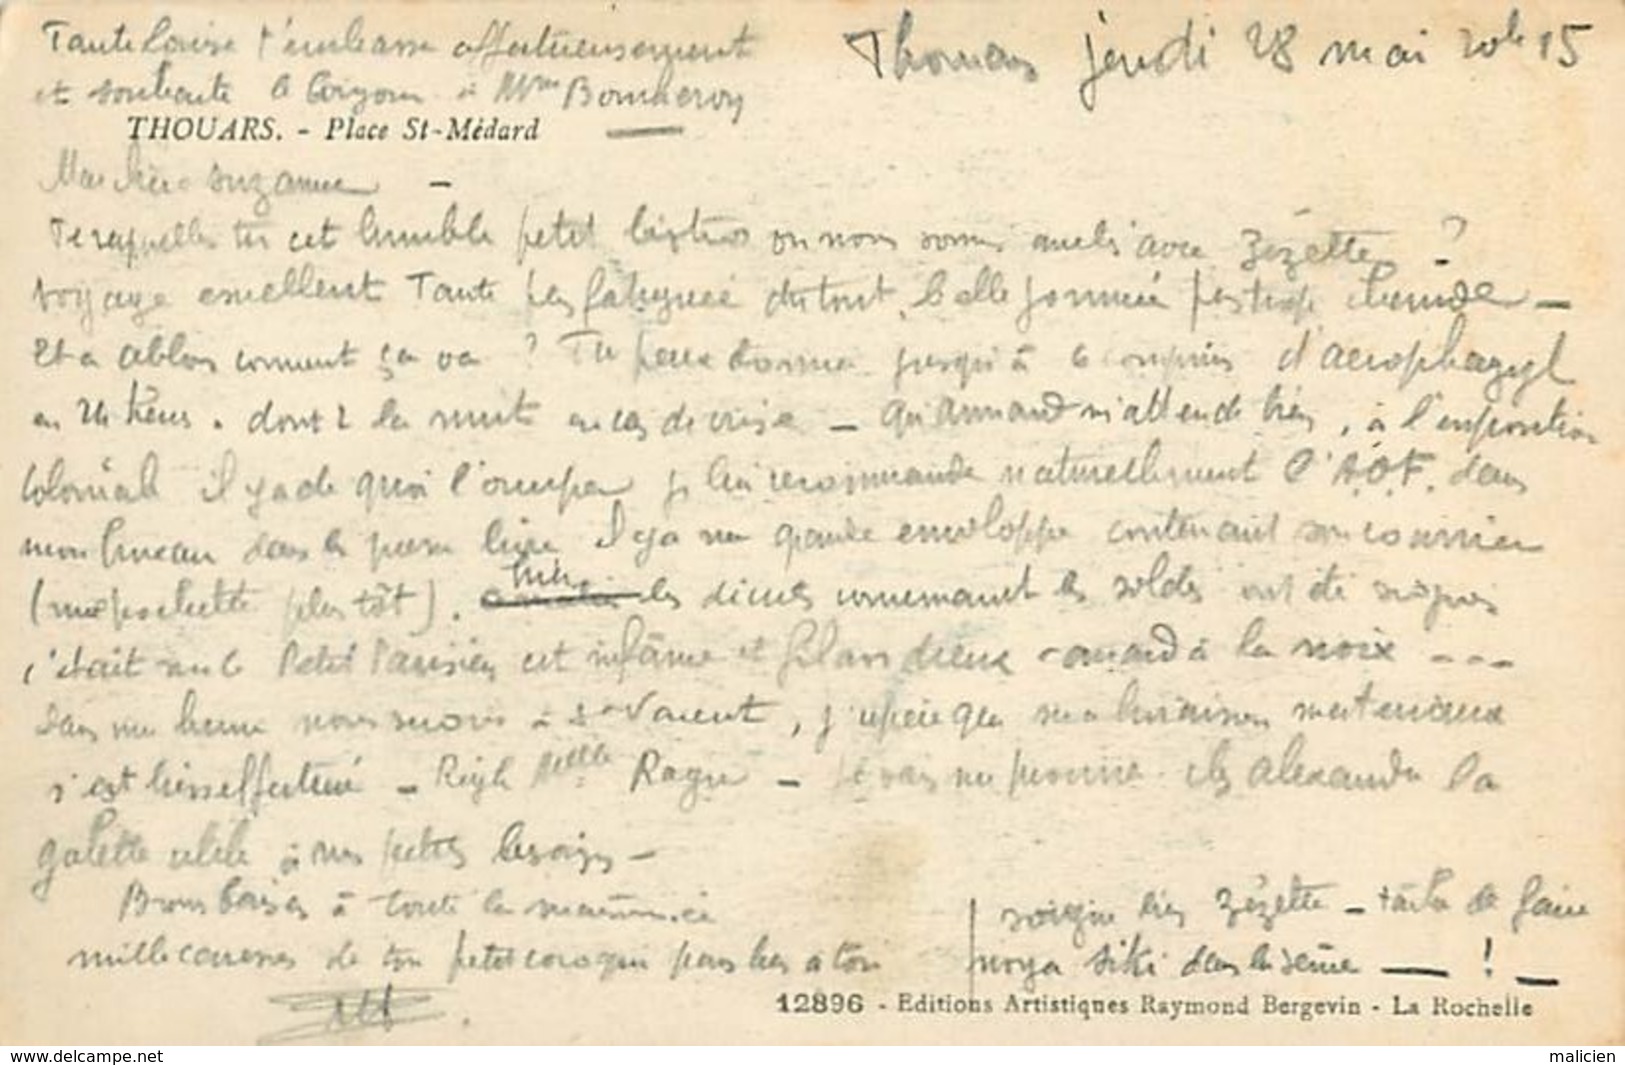 Tante Louise t'embrasse affectueusement
et souhaite le bonjour à Mme
Thouars jeudi 28 mai 20h15
THOUARS. - Place St-Médard
Ma chère Suzanne -
Te rappelles tu cet humble petit bistros où nous sommes avec Zézette ?
Voyage excellent Tante pas fatiguée du tout, belle journée pas trop chaude -
Et a Ablon comment ça va ? Tu peux donner jusqu'à 6 comprimés d'aerophagyl
en 24 heures. dont 2 la nuit en cas de crise - Qu'Armand m'attende bien, à l'exposition
Coloniale il y a de quoi l'occuper je lui recommande naturellement l'A.O.F. dans
mon bureau dans le il y a une grande enveloppe contenant son courrier
(une pochette plus tôt). les décrets concernant les soldes ont été signés
c'était sur le Petit Parisien cet infâme et canard à la noix - - -
dans une heure nous serons à St Varent, j'espère que la livraison
s'est bien effectuée - Mlle - je vais me chez Alexandre la
galette utile à mes petits besoins -
Bons baisers à toute la
mille caresses de ton petit coco qui pense bien à toi
soigne bien Zézette - tâche de faire
noyer Siki dans la Seine - ! -
12896 - Editions Artistiques Raymond Bergevin - La Rochelle
www.delcampe.net
malicien